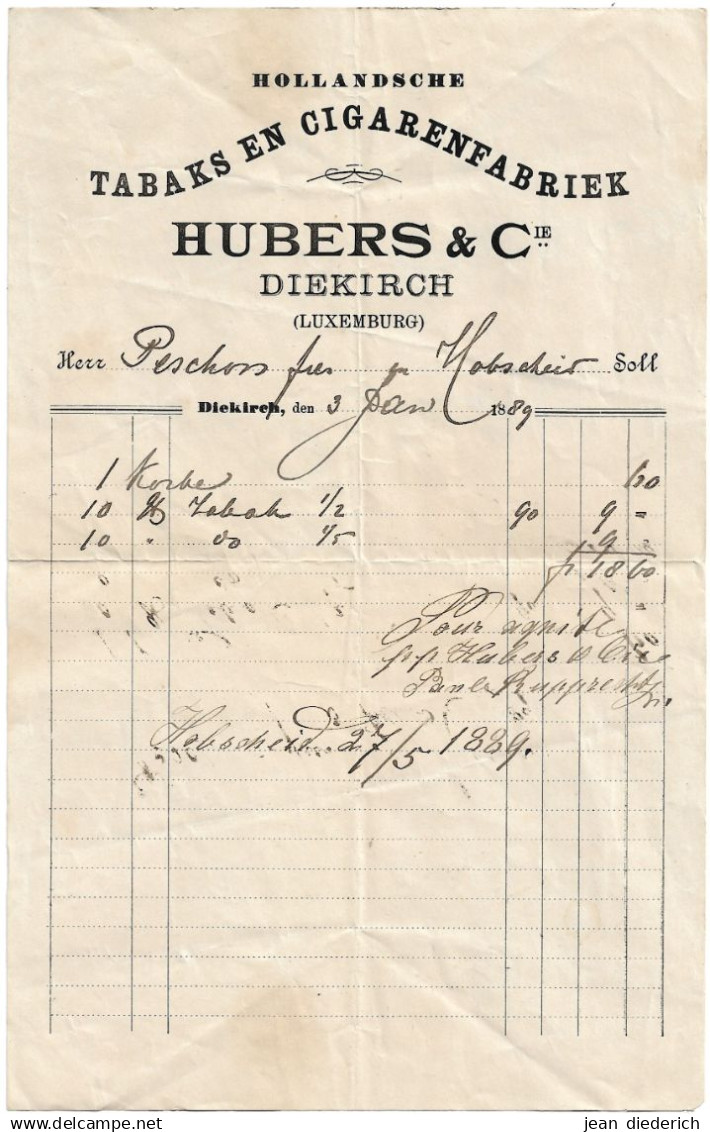 HOLLANDSCHE
TABAKS EN CIGARENFABRIEK
HUBERS & CIE
DIEKIRCH
(LUXEMBURG)
Herr Peschon in Hobscheid Soll
Diekirch, den 3 Jan 1889
1 Korbe 60
10 Tabak 1/2 90 9 "
10 " do 1/5 9 "
fr 18 60
Pour aquit
p.p. Hubers & Cie
Rupprecht
Hobscheid. 27/5 1889.
jean diederich